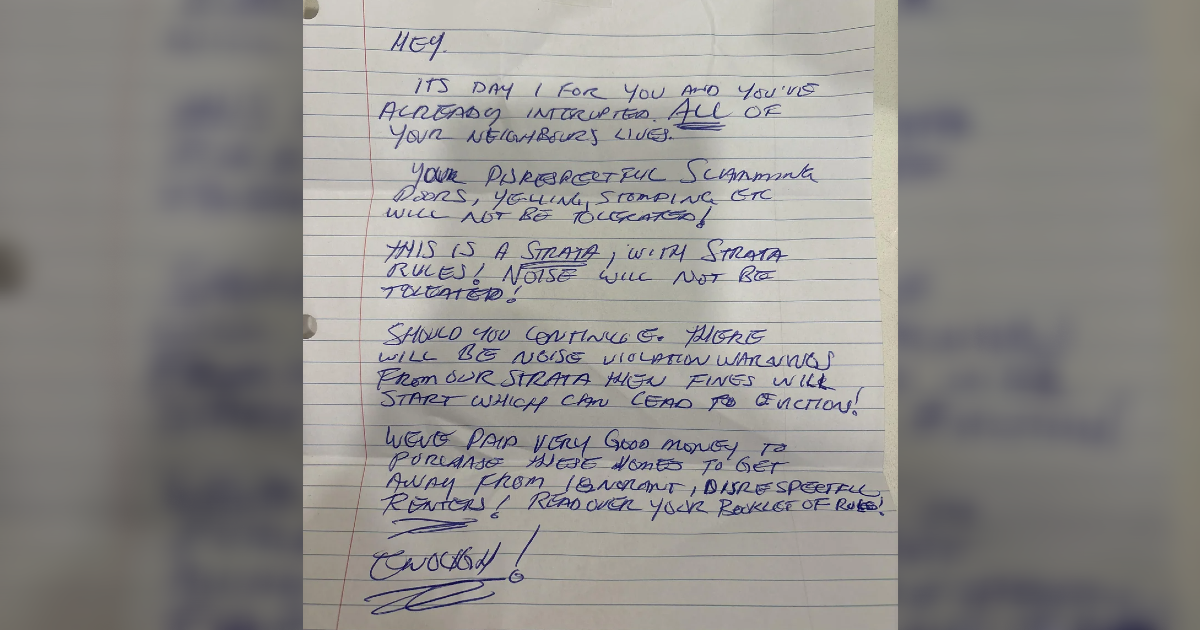 HEY.
ITS DAY 1 FOR YOU AND YOU'VE
ALREADY INTERUPTED ALL OF
YOUR NEIGHBOURS LIVES.
YOUR DISRESPECTFUL SLAMMING
DOORS, YELLING, STOMPING ETC
WILL NOT BE TOLERATED!
THIS IS A STRATA, WITH STRATA
RULES! NOISE WILL NOT BE
TOLEATED!
SHOULD YOU CONTINUE. THERE
WILL BE NOISE VIOLATION WARNINGS
FROM OUR STRATA THEN FINES WILL
START WHICH CAN LEAD TO EVICTION!
WEVE PAID VERY GOOD MONEY TO
PURCHASE THESE HOMES TO GET
AWAY FROM IGNORANT, DISRESPECTFUL
RENTERS! READ OVER YOUR BOOKLET OF RULES!
ENOUGH!